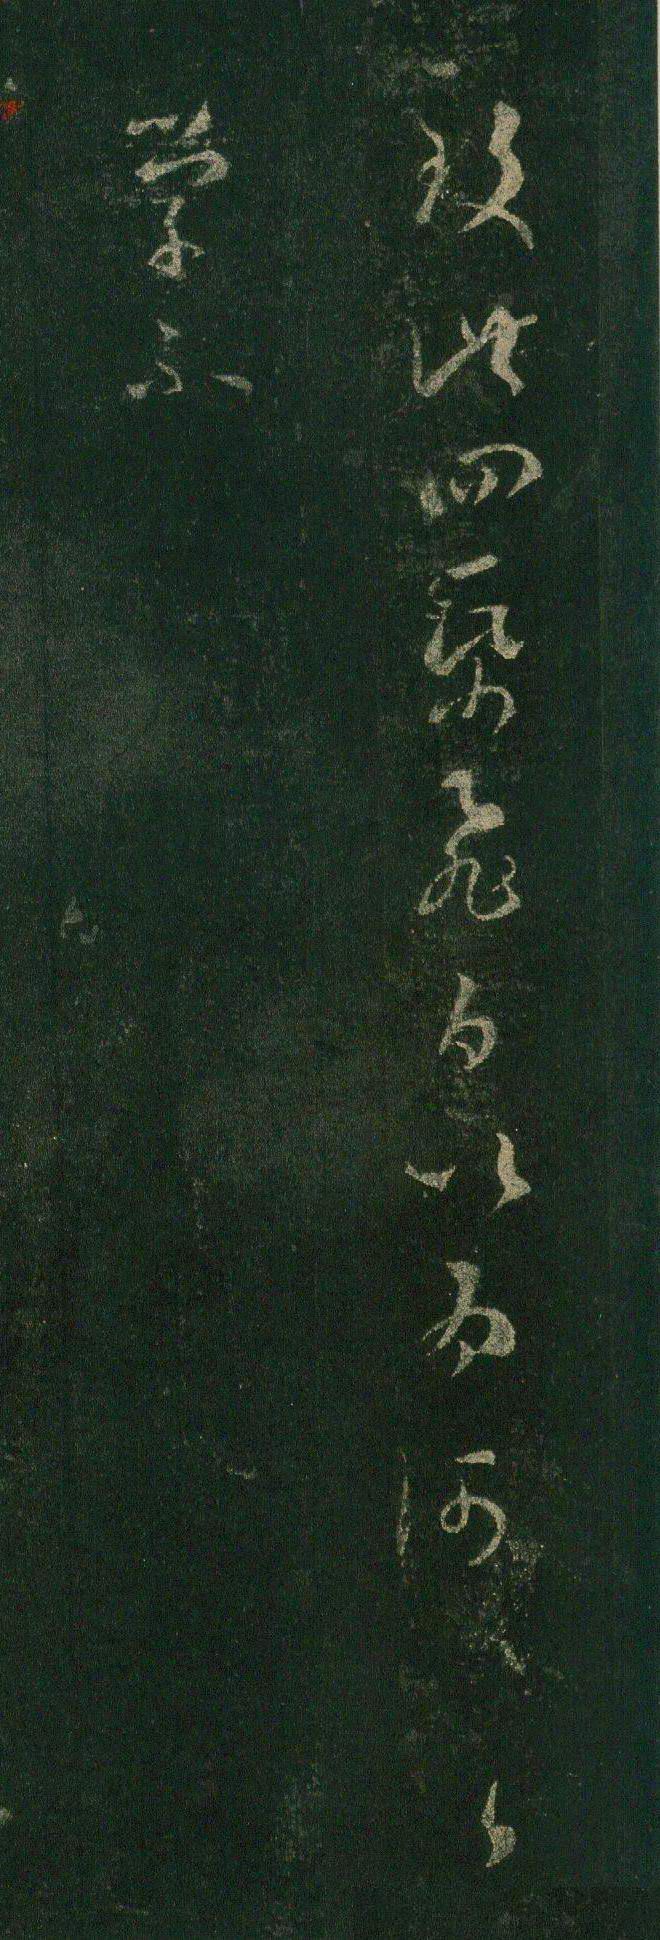 致此四紙飛白以為何
學不